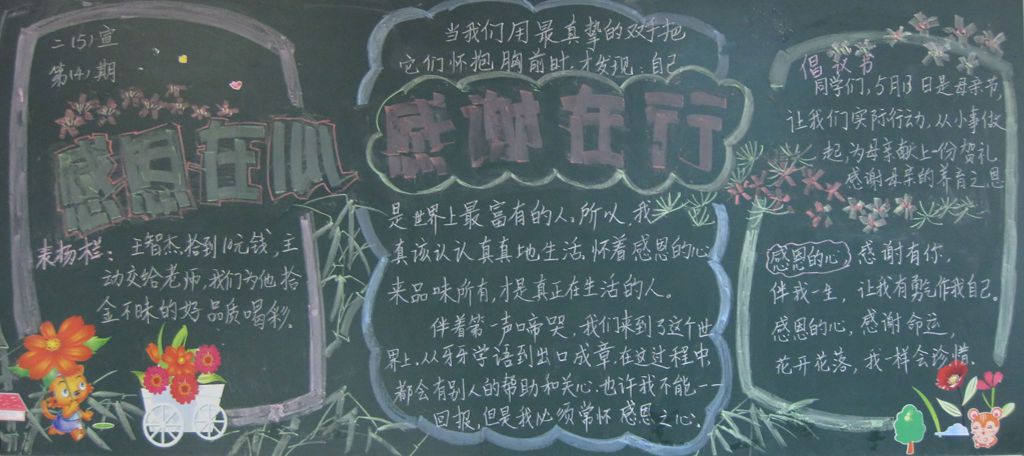 二(5)宣
第(4)期
感恩在心
表扬栏：王智杰拾到10元钱，主
动交给老师，我们为他拾
金不昧的好品质喝彩。
当我们用最真挚的双手把
它们怀抱胸前时，才发现：自己
感谢在行
是世界上最富有的人。所以，我
真该认认真真地生活，怀着感恩的心
来品味所有，才是真正在生活的人。
伴着第一声啼哭，我们来到了这个世
界上。从牙牙学语到出口成章，在这过程中，
都会有别人的帮助和关心。也许我不能一一
回报，但是我必须常怀感恩之心。
倡议书
同学们，5月13日是母亲节，
让我们实际行动，从小事做
起，为母亲献上一份贺礼
感谢母亲的养育之恩
感恩的心，感谢有你，
伴我一生，让我有勇气作我自己。
感恩的心，感谢命运，
花开花落，我一样会珍惜。